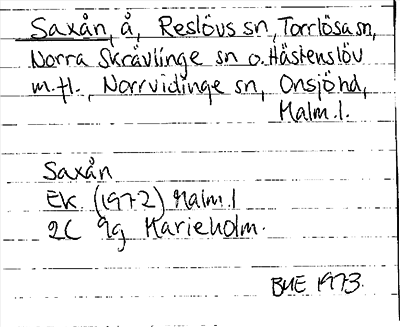 Saxån, å, Reslövs sn, Torrlösa sn,
Norra Skrävlinge sn o. Hästenslöv
m.fl., Norrvidinge sn, Onsjö hd,
Malm.l.
Saxån
Ek (1972) Malm.l
2C 9g Marieholm.
BME 1973.